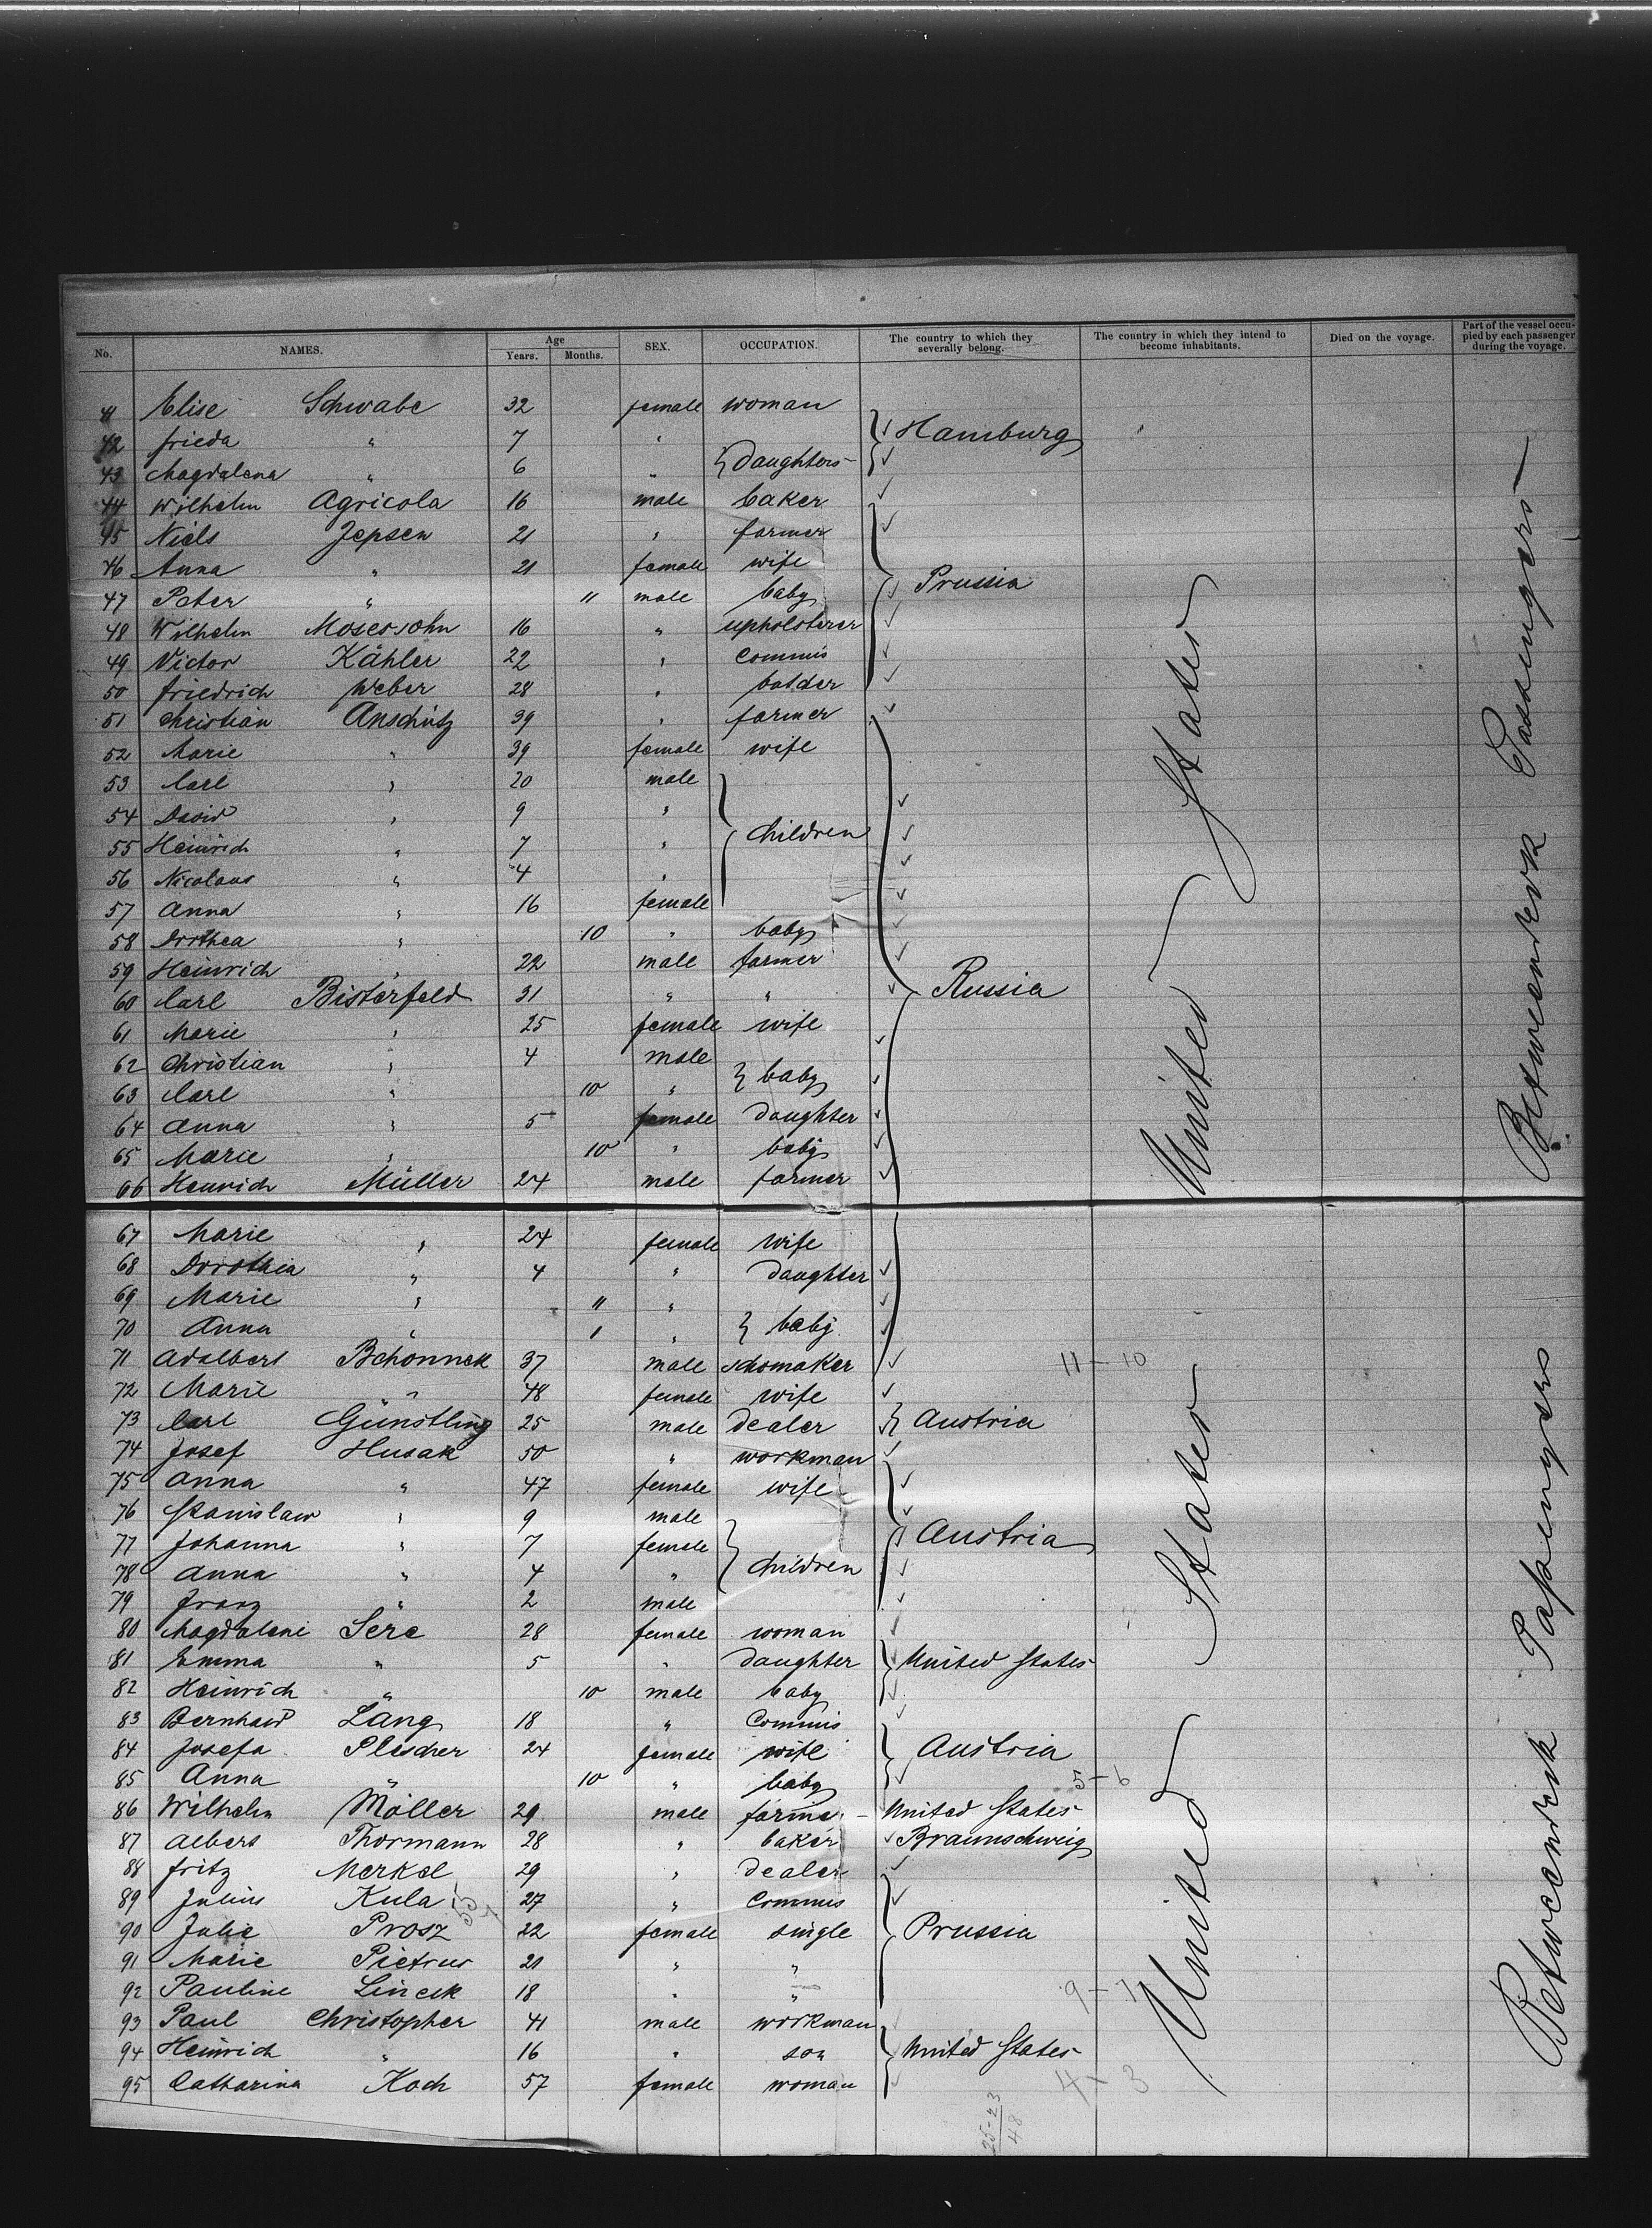 No. NAMES. Age Years. Months. SEX. OCCUPATION. The country to which they severally belong. The country in which they intend to become inhabitants. Died on the voyage. Part of the vessel occupied by each passenger during the voyage.
41 Elise Schwabe 32 female woman
42 Frieda " 7 " Hamburg
43 Magdalena " 6 " } Daughters
44 Wilhelm Agricola 16 male baker
45 Niels Jepsen 21 " farmer
46 Anna " 21 female wife
47 Peter " 11 male baby Prussia
48 Wilhelm Mosessohn 16 " upholsterer
49 Victor Kähler 22 " Commis
50 Friedrich Weber 28 "
51 Christian Anschütz 39 " farmer
52 Marie " 39 female wife
53 Carl " 20 male
54 David " 9 "
55 Heinrich " 7 " Children
56 Nicolaus " 4 "
57 Anna " 16 female
58 Dorthea " 10 " baby
59 Heinrich " 22 male farmer
60 Carl Bisterfeld 31 " " Russia
61 Marie " 25 female wife
62 Christian " 4 male
63 Carl " 10 " } baby
64 Anna " 5 female daughter
65 Marie " 10 " baby
66 Heinrich Müller 24 male farmer
67 Marie " 24 female wife
68 Dorothia " 4 " daughter
69 Marie " 11 "
70 Anna " 1 " } baby
71 Adalbert Bchonnek 37 male schomaker 11 - 10
72 Marie " 48 female wife
73 Carl Günstling 25 male dealer } Austria
74 Josef Husak 50 " workman
75 Anna " 47 female wife
76 Stanislaw " 9 male
77 Johanna " 7 female Austria
78 Anna " 4 " Children
79 Franz " 2 male
80 Magdalene Sere 28 female woman
81 Emma " 5 " daughter United States
82 Heinrich " 10 male baby
83 Bernhard Lang 18 " Commis
84 Josefa Plescher 24 female wife Austria
85 Anna " 10 " baby 5 - 6
86 Wilhelm Möller 29 male farmer - United States
87 Albert Thormann 28 " baker Braunschweig
88 Fritz Merkel 29 " dealer
89 Julius Kula 27 " Commis
90 Julie Prosz 22 female single Prussia
91 Marie Pietrus 21 " "
92 Pauline Lineck 18 " " 9 - 7
93 Paul Christopher 41 male workman
94 Heinrich " 16 " son United States
95 Catharina Koch 57 female woman 4 - 3
25-23
48
United States
United States
Betweendeck Passengers
Betweendeck Passengers